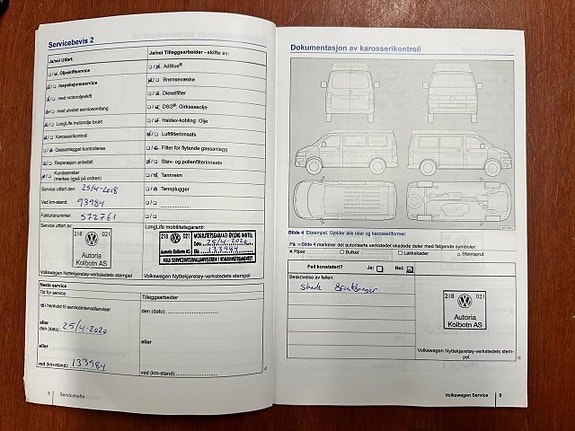 Servicebevis 2
Ja/nei Utført:
Oljeskiftservice
Inspeksjonsservice
med motoroljeskift
med utvidet serviceomfang
LongLife motorolje brukt
Karosserikontroll
Gassanlegget kontrolleres
Reparasjon anbefalt
Kundeønsker
(merkes også på ordren)
Service utført den 25/4-2018
ved km-stand: 93984
Fakturanummer: 572761
Service utført av:
218 021
Autoria
Kolbotn AS
Volkswagen Nyttekjøretøy-verkstedets stempel
Ja/nei Tilleggsarbeider - skifte av:
AdBlue®
Bremsevæske
Dieselfilter
DSG®: Girkasseolje
Haldex-kobling: Olje
Luftfilterinnsats
Filter for flytende gassanlegg
Støv- og pollenfilterinnsats
Tannreim
Tennplugger
LongLife mobilitetsgaranti:
MOBILITETSGARANTI GYLDIG INNTIL
Dato: 25/4-2020
Autoria Kolbotn AS
Volkswagen Nyttekjøretøy-verkstedets stempel
Neste service
Tid for service
i henhold til serviceintervallanviser
eller
den (dato): 25/4-2020
eller
ved (km-stand): 133984
Tilleggsarbeider
den (dato):
eller
ved (km-stand):
8 Servicehefte
Dokumentasjon av karosserikontroll
Bilde 4 Eksempel: Gjelder alle biler og karosseriformer.
På ⇒ Bilde 4 markerer det autoriserte verkstedet skadede deler med følgende symboler:
× Riper ○ Bulker □ Lakkskader △ Steinsprut
Feil konstatert? Ja: Nei:
Beskrivelse av feilen:
218 021
Autoria
Kolbotn AS
Volkswagen Nyttekjøretøy-verkstedets stem-
pel
Volkswagen Service 9